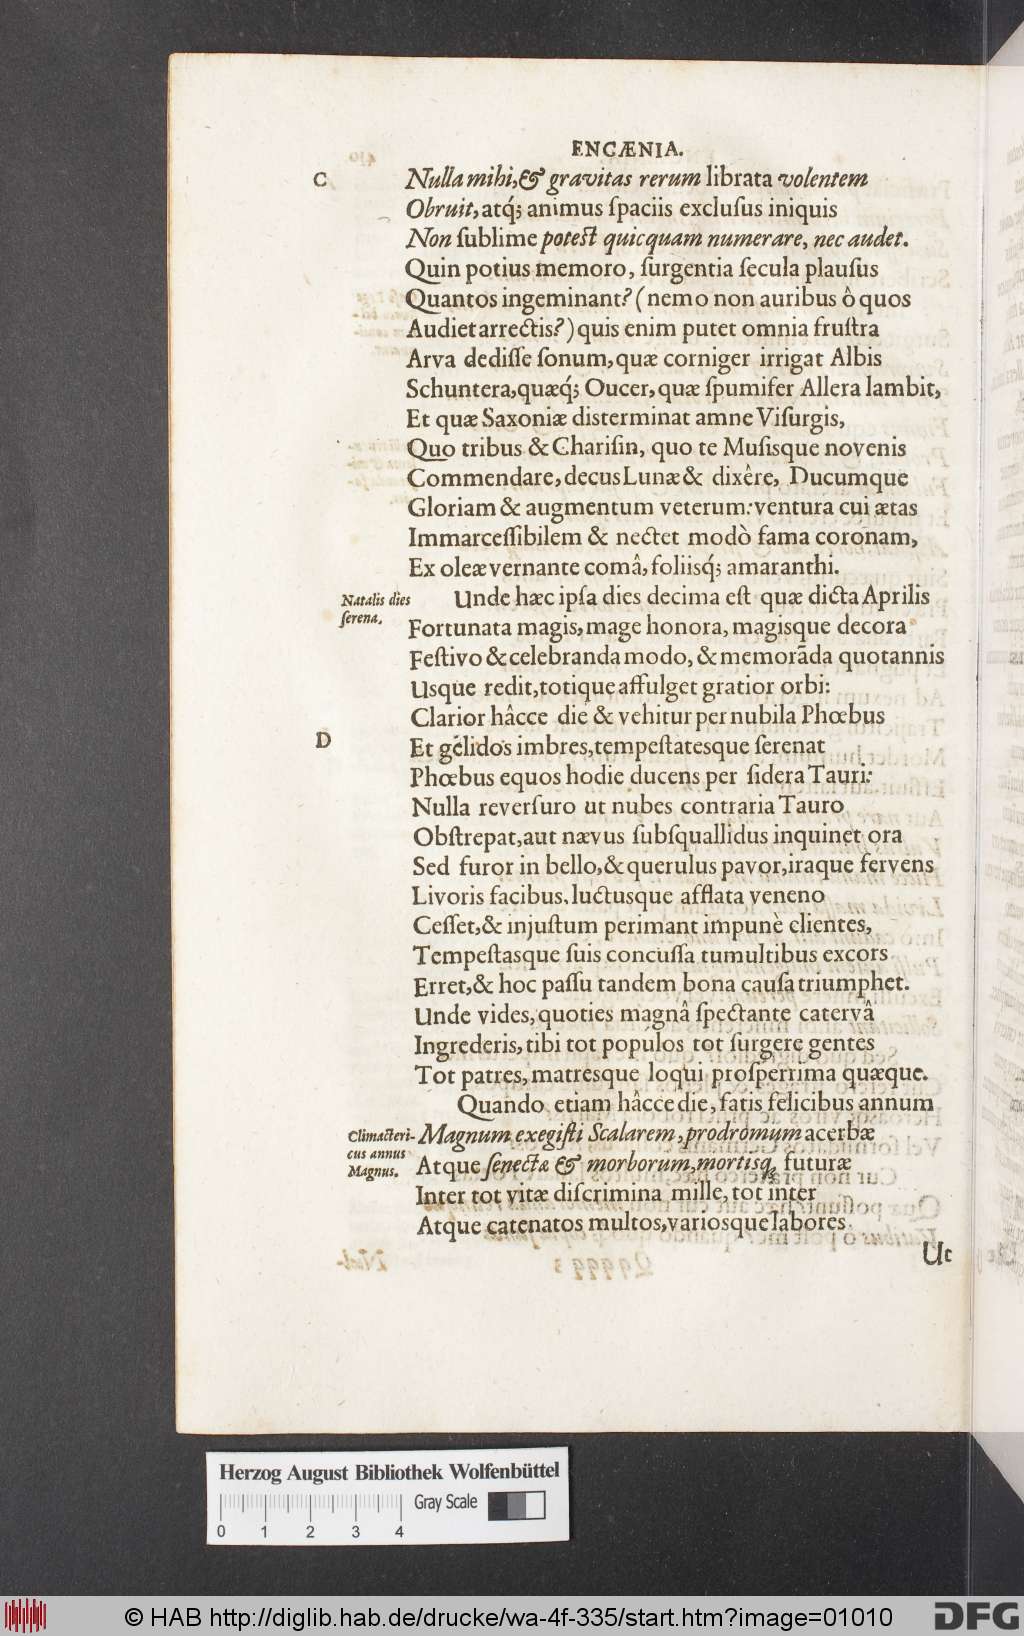 ENCÆNIA.
C
Nulla mihi, & gravitas rerum librata volentem
Obruit, atq́; animus ſpaciis excluſus iniquis
Non ſublime poteſt quicquam numerare, nec audet.
Quin potius memoro, ſurgentia ſecula plauſus
Quantos ingeminant? (nemo non auribus ô quos
Audiet arrectis?) quis enim putet omnia fruſtra
Arva dediſſe ſonum, quæ corniger irrigat Albis
Schuntera, quæq́; Oucer, quæ ſpumifer Allera lambit,
Et quæ Saxoniæ disterminat amne Viſurgis,
Quo tribus & Chariſin, quo te Muſisque novenis
Commendare, decus Lunæ & dixêre, Ducumque
Gloriam & augmentum veterum: ventura cui ætas
Immarceſſibilem & nectet modò fama coronam,
Ex oleæ vernante comâ, foliisq́; amaranthi.
Natalis dies
ſerena.
Unde hæc ipſa dies decima eſt quæ dicta Aprilis
Fortunata magis, mage honora, magisque decora
Feſtivo & celebranda modo, & memorāda quotannis
Usque redit, totique affulget gratior orbi:
Clarior hâcce die & vehitur per nubila Phœbus
D
Et gélidos imbres, tempeſtatesque ſerenat
Phœbus equos hodie ducens per ſidera Tauri:
Nulla reverſuro ut nubes contraria Tauro
Obſtrepat, aut nævus ſubſquallidus inquinet ora
Sed furor in bello, & querulus pavor, iraque fervens
Livoris facibus, luctusque afflata veneno
Ceſſet, & injuſtum perimant impunè clientes,
Tempeſtasque ſuis concuſſa tumultibus excors
Erret, & hoc paſſu tandem bona cauſa triumphet.
Unde vides, quoties magnâ ſpectante catervâ
Ingrederis, tibi tot populos tot ſurgere gentes
Tot patres, matresque loqui proſperrima quæque.
Quando etiam hâcce die, fatis felicibus annum
Climacteri-
cus annus
Magnus.
Magnum exegiſti Scalarem, prodromum acerbæ
Atque ſenectæ & morborum, mortisq; futuræ
Inter tot vitæ diſcrimina mille, tot inter
Atque catenatos multos, variosque labores
Ut
Herzog August Bibliothek Wolfenbüttel
Gray Scale
0 1 2 3 4
© HAB http://diglib.hab.de/drucke/wa-4f-335/start.htm?image=01010
DFG